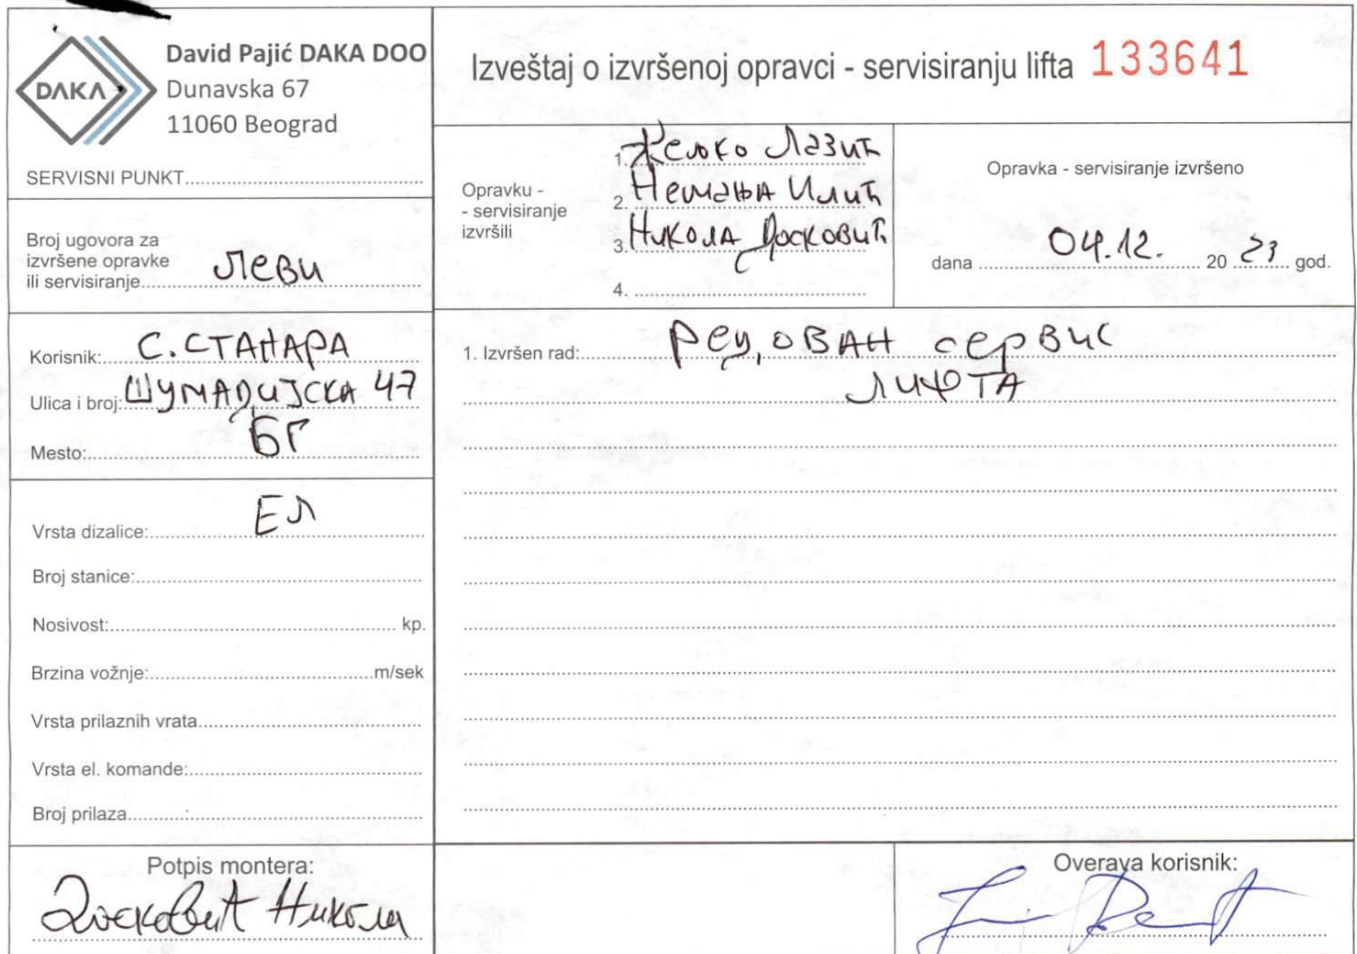 DAKA
David Pajić DAKA DOO
Dunavska 67
11060 Beograd
SERVISNI PUNKT
Izveštaj o izvršenoj opravci - servisiranju lifta 133641
Broj ugovora za
izvršene opravke
ili servisiranje Леви
Opravku -
- servisiranje
izvršili
1. Жељко Лазић
2. Немања Илић
3. Никола Досковић
4.
Opravka - servisiranje izvršeno
dana 04.12. 20 23 god.
Korisnik: С.СТАНАРА
Ulica i broj: ШУМАДИЈСКА 47
Mesto: БГ
1. Izvršen rad: РЕДОВАН СЕРВИС
ЛИФТА
Vrsta dizalice: ЕЛ
Broj stanice:
Nosivost: kp.
Brzina vožnje: m/sek
Vrsta prilaznih vrata
Vrsta el. komande:
Broj prilaza
Potpis montera:
Досковић Никола
Overava korisnik: